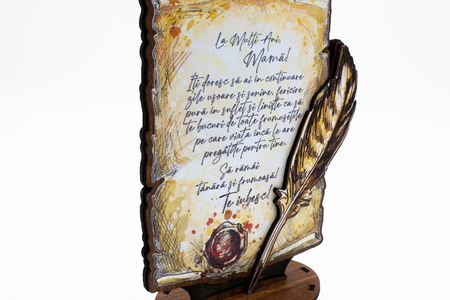 La Mulți Ani,
Mamă!
Îți doresc să ai în continuare
zile ușoare și senine, fericire
pură în suflet și liniște ca să
te bucuri de toate frumusețile
pe care viața încă le are
pregătite pentru tine.
Să rămâi
tânără și frumoasă!
Te iubesc!